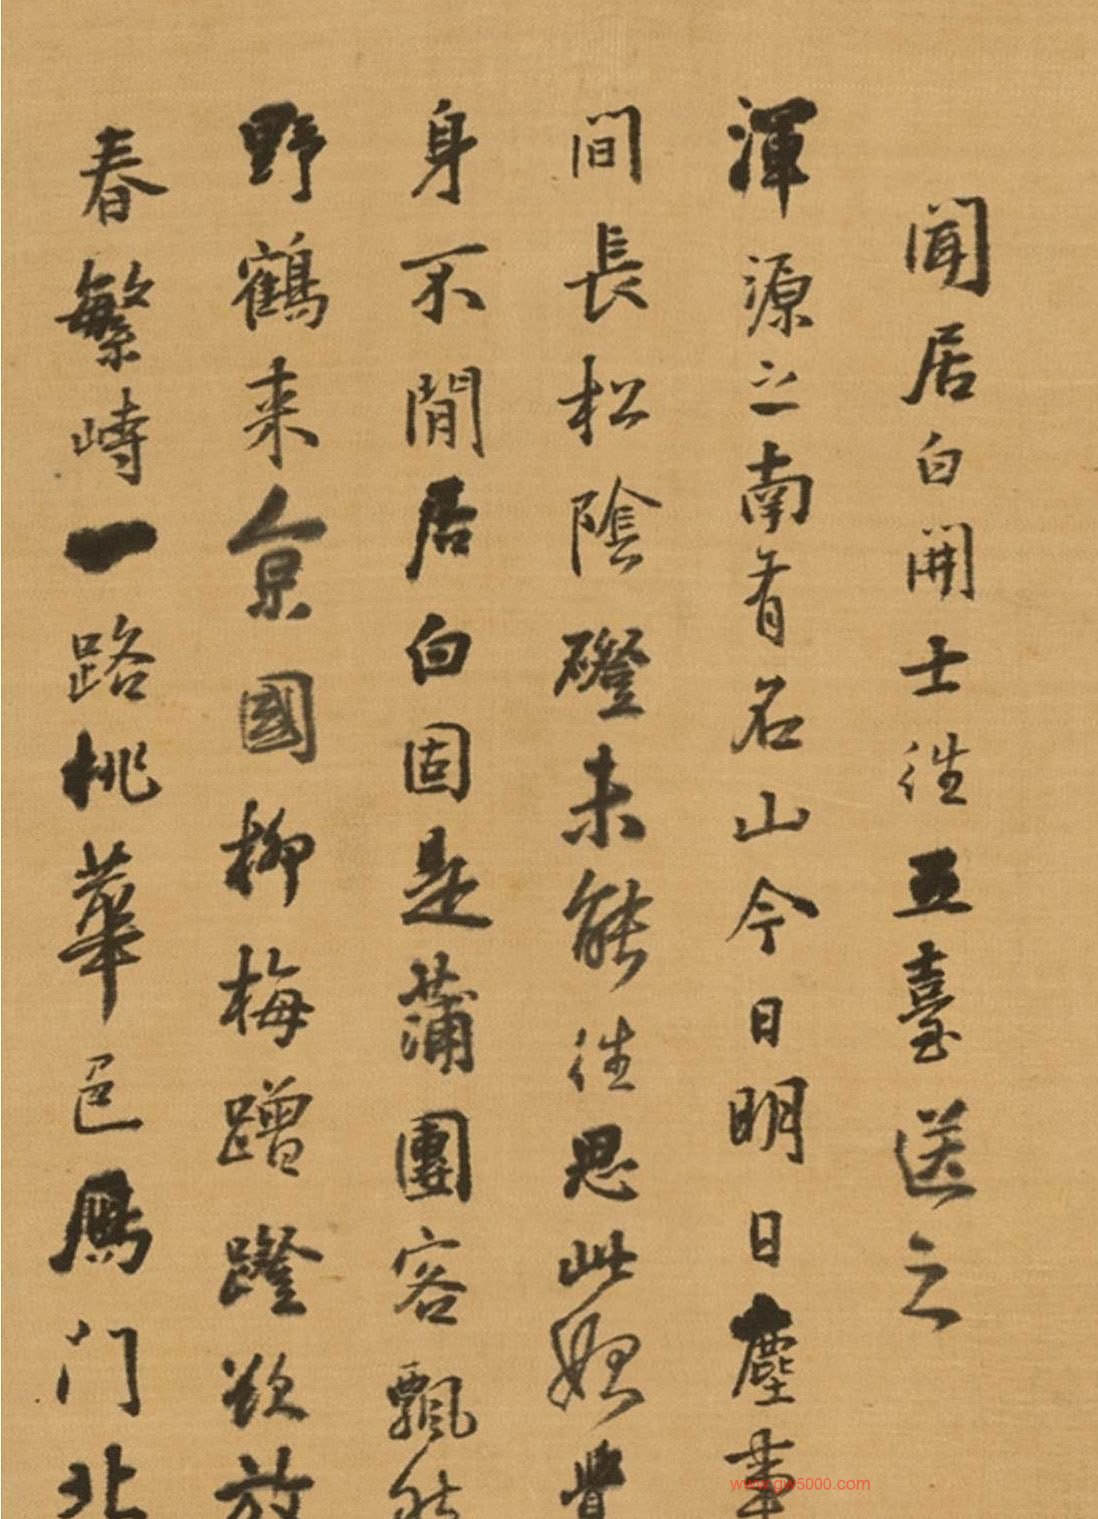 聞居白開士往五臺送之
渾源之南有名山今日明日塵事
間長松陰磴未能往思此始覺
身不閒居白固是蒲團客飄然
野鶴来京國柳栴蹭蹬欲放
春繁峙一路桃華邑鴈门北
www.gw5000.com